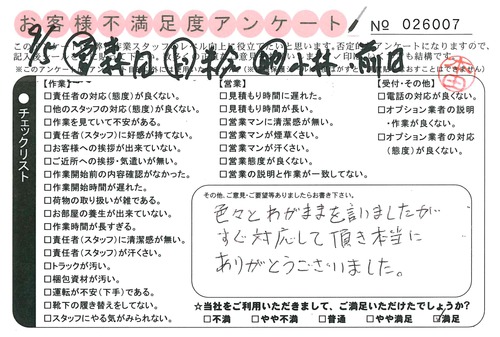 お客様不満足度アンケート
No 026007
【作業】
□責任者の対応(態度)が良くない。
□他のスタッフの対応(態度)が良くない。
□作業を見ていて不安がある。
□責任者(スタッフ)に好感が持てない。
□お客様への挨拶が出来ていない。
□ご近所への挨拶・気遣いが無い。
□作業開始前の内容確認がなかった。
□作業開始時間が遅れた。
□荷物の取り扱いが雑である。
□お部屋の養生が出来ていない。
□作業時間が長すぎる。
□責任者(スタッフ)に清潔感が無い。
□責任者(スタッフ)が汗臭い。
□トラックが汚い。
□梱包資材が汚い。
□運転が不安(下手)である。
□靴下の履き替えをしてない。
□スタッフにやる気がみられない。
チェックリスト
【営業】
□見積もり時間に遅れた。
□見積もり時間が長い。
□営業マンに清潔感が無い。
□営業マンが煙草くさい。
□営業マンが汗くさい。
□営業態度が良くない。
□営業の説明と作業が一致してない。
【受付・その他】
□電話の対応が良くない。
□オプション業者の説明
・作業が良くない。
□オプション業者の対応
(態度)が良くない。
その他、ご意見・ご要望等ありましたらお書き下さい。
色々とわがままを言いましたが
すぐ対応して頂き本当に
ありがとうございました。
☆当社をご利用いただきまして、ご満足いただけたでしょうか?
□不満 □やや不満 □普通 □やや満足 ☑満足